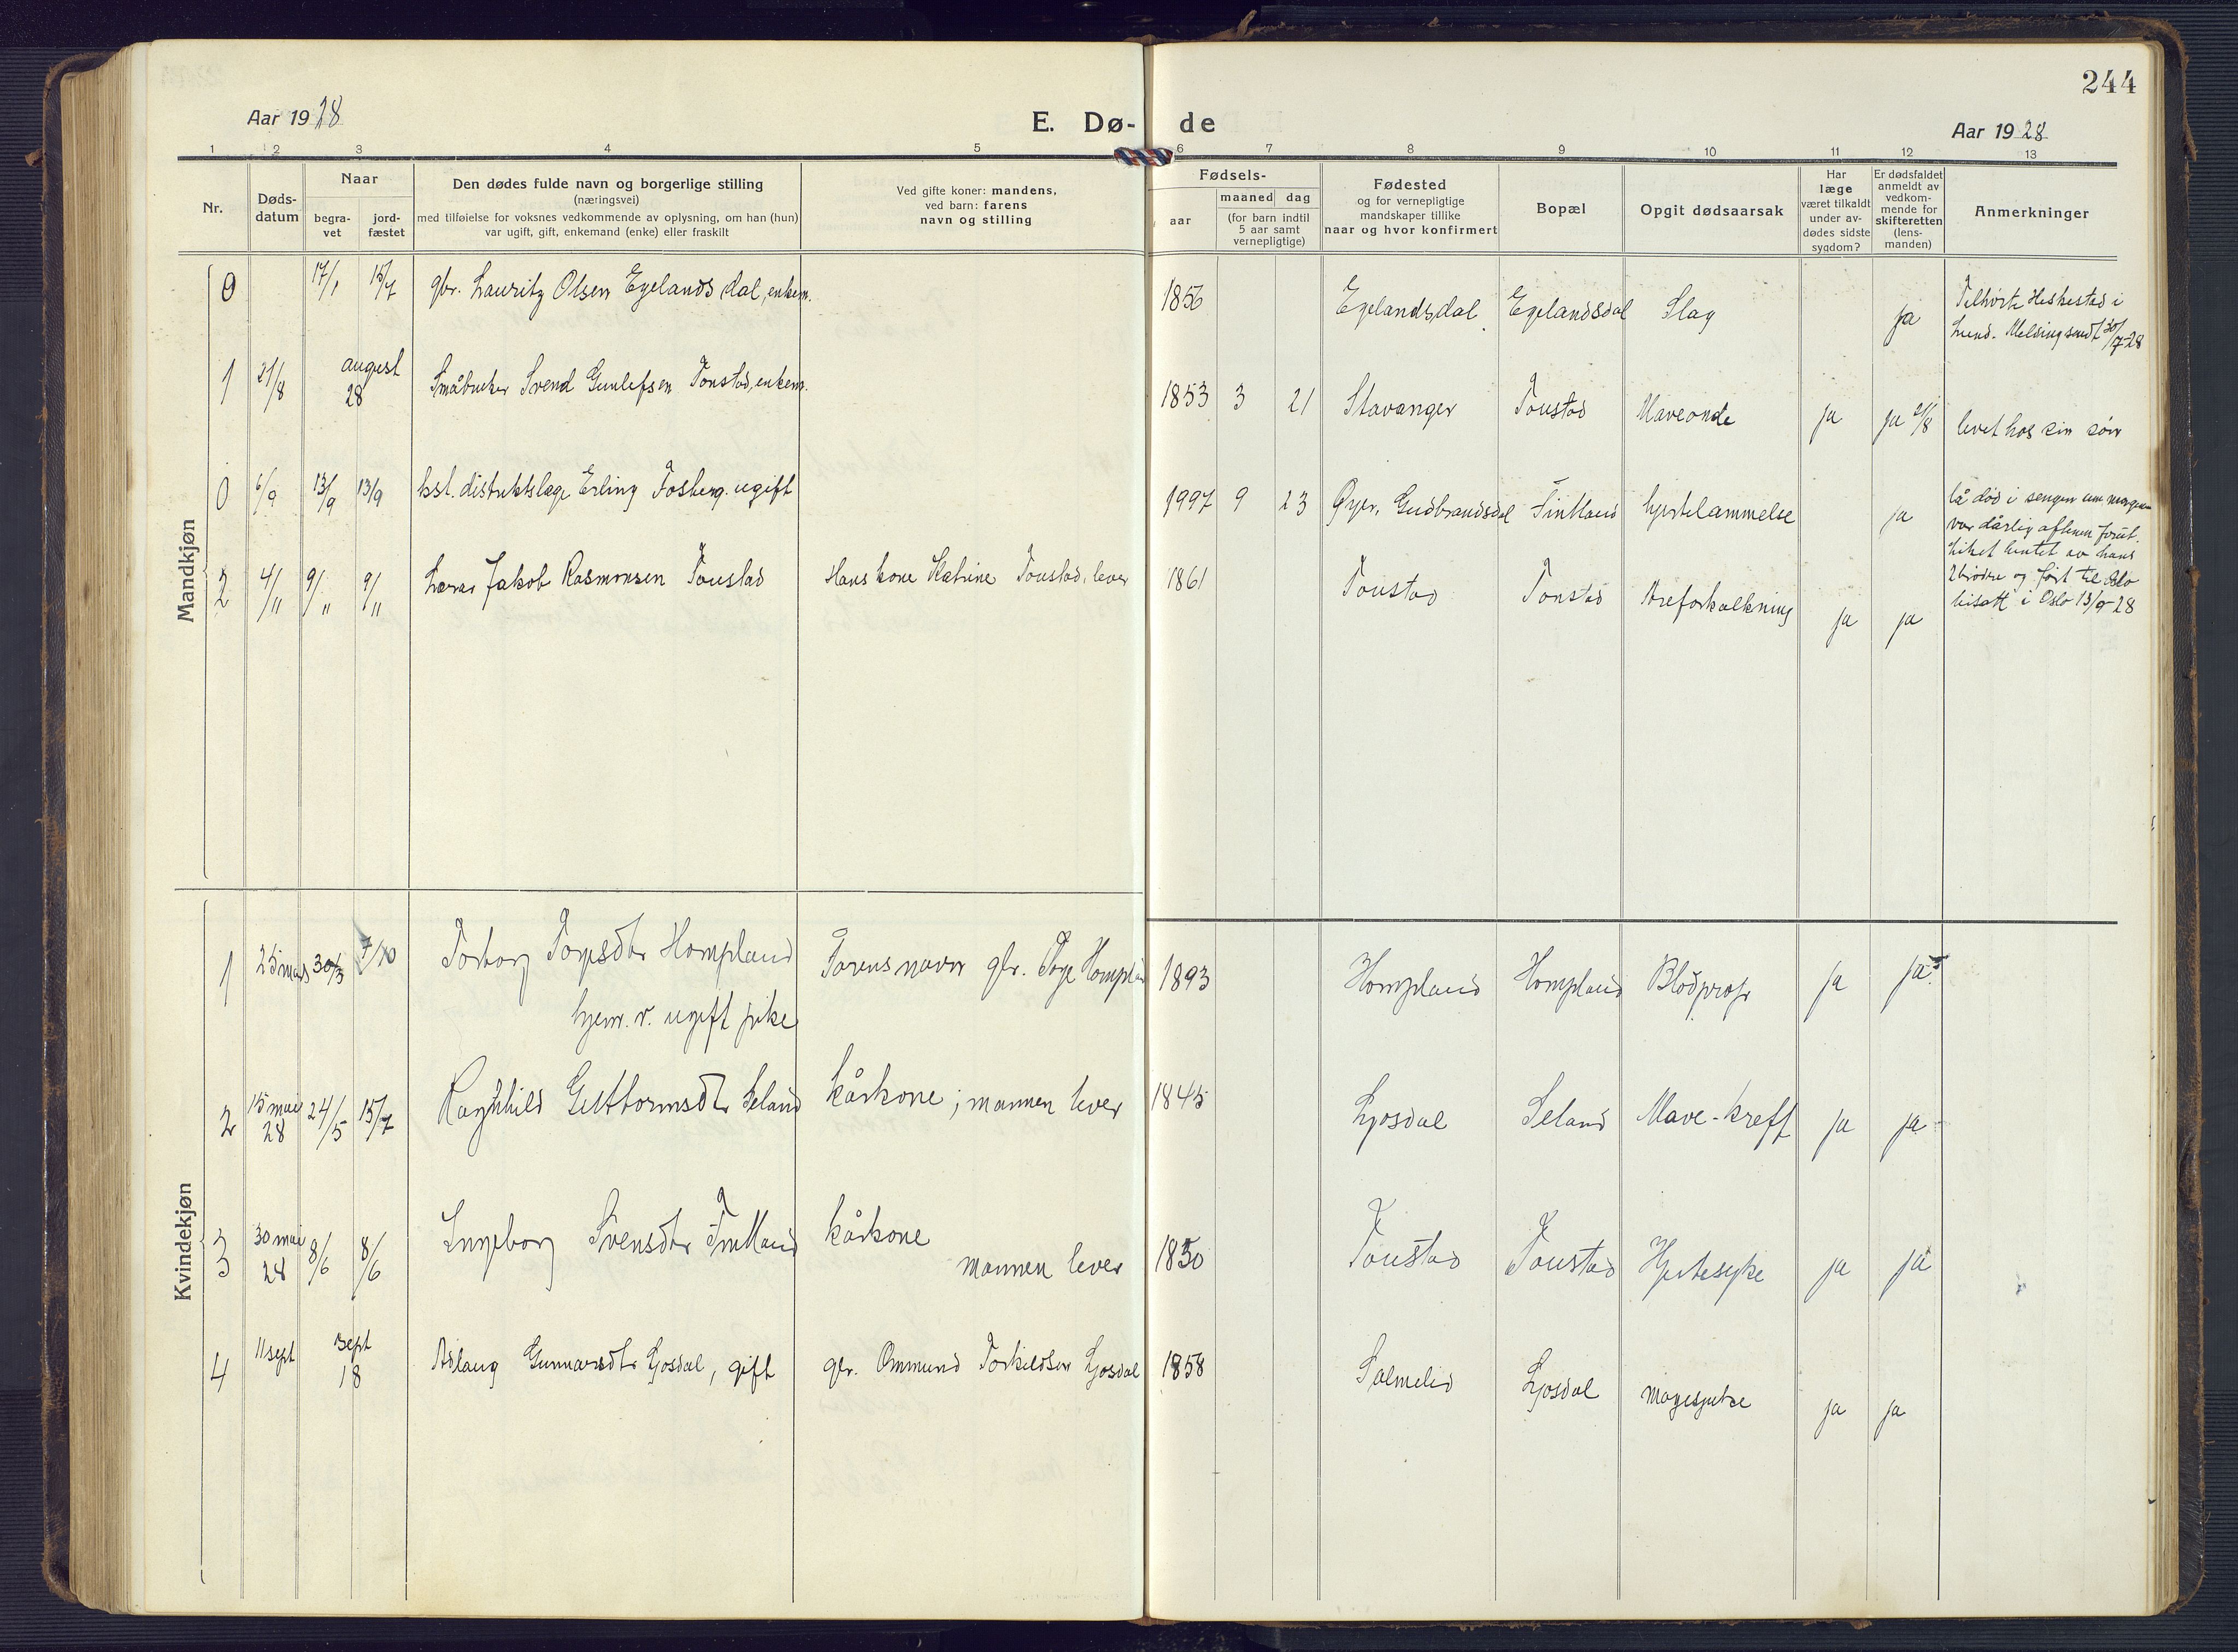 244
Aar 1928
E. Dø-de
Aar 1928
1 2 3 4 5 6 7 8 9 10 11 12 13
Nr.
Døds-
datum
Naar
begra-
vet
jord-
fæstet
Den dødes fulde navn og borgerlige stilling
(næringsvei)
med tilføielse for voksnes vedkommende av oplysning, om han (hun)
var ugift, gift, enkemand (enke) eller fraskilt
Ved gifte koner: mandens,
ved barn: farens
navn og stilling
Fødsels-
aar
maaned dag
(for barn indtil
5 aar samt
vernepligtige)
Fødested
og for vernepligtige
mandskaper tillike
naar og hvor konfirmert
Bopæl
Opgit dødsaarsak
Har
læge
været tilkaldt
under av-
dødes sidste
sygdom?
Er dødsfaldet
anmeldt av
vedkom-
mende for
skifteretten
(lens-
manden)
Anmerkninger
Mandkjøn
0 17/1 15/7 gbr. Lauritz Olsen Egelandsdal, enkem. 1856 Egelandsdal Egelandsdal Slag ja
Tilhørte Heskestad i
Lund. Melding sendt 30/7-28
1 21/8 august 28 Småbruker Svend Gunlefsen Tonstad, enkem. 1853 3 21 Stavanger Tonstad Maveonde ja ja /8 levet hos sin sön
0 6/9 13/9 13/9 kst. distriktslæge Erling Fosberg. ugift 1997 9 23 Øyer, Gudbrandsdal Tintland hjertelammelse ja
lå död i sengen om morgen
var dårlig aftenen forut.
Liket hentet av hans
2 brödre og fört til Oslo
bisatt i Oslo 13/9-28
2 4/11 9/11 9/11 Lærer Jakob Rasmussen Tonstad Hans kone Katrine Tonstad, lever 1861 Tonstad Tonstad Areforkalkning ja ja
Kvindekjøn
1 25 mars 30/3 7/10 Torborg Torgesdtr Hompland Farens navn gbr. Torge Hompland 1893 Hompland Hompland Blodpropp ja ja
hjem. v. ugift pike
2 15 mai 28 24/5 15/7 Ragnhild Guttormsdtr Seland kårkone; mannen lever 1845 Ljosdal Seland Mave-kreft ja ja
3 30 mai 28 8/6 8/6 Ingeborg Svensdtr Tintland kårkone 1850 Tonstad Tonstad Hjertesyke ja ja
mannen lever
4 11 sept sept 18 Aslaug Gunnarsdtr Ljosdal, gift gbr. Ommund Torkildsen Ljosdal 1858 Salmelid Ljosdal magesyke ja ja